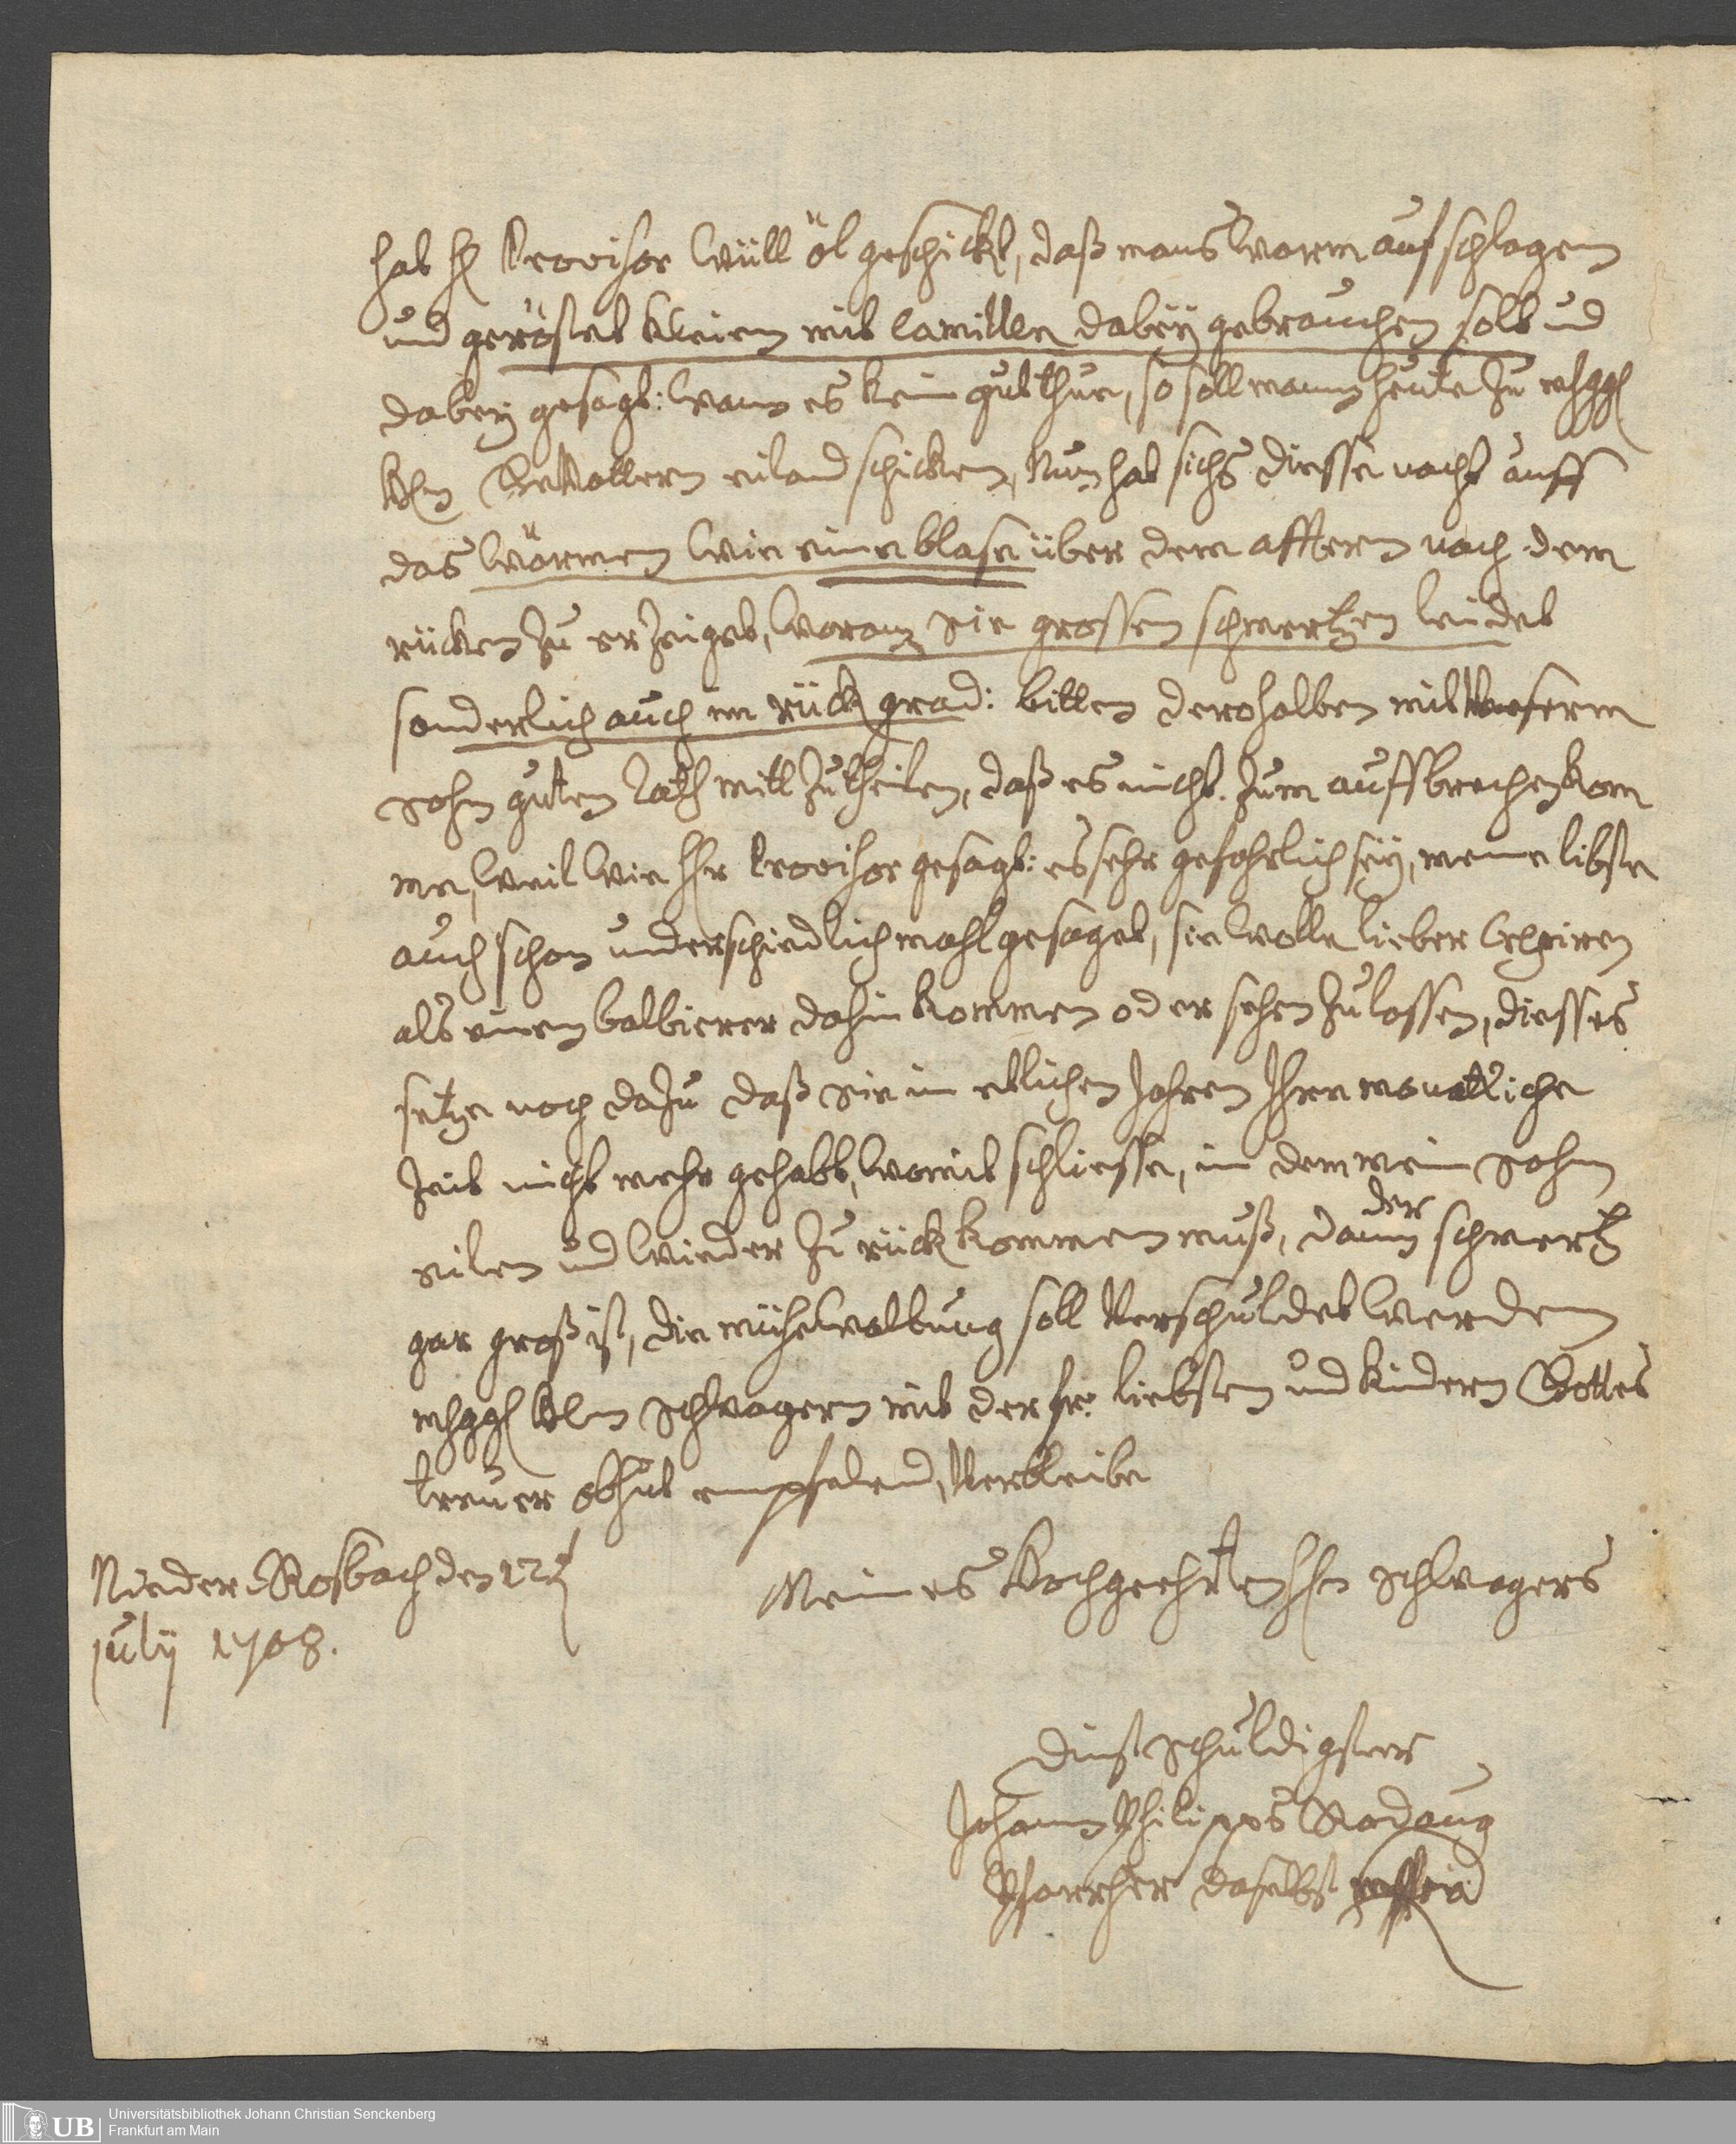 hat H Provisor Wüll öl geschickt, daß mans warm aufschlagen
und geröstet kleien mit Camillen dabeÿ gebrauchen solt und
dabeÿ gesagt: wann es kein gut thue, so soll mann heute zu mhggh
HEn Gevattern eilend schicken, Nun hat sichs diesse nacht auff
das wärmen wie eine blase über dem afftern nach dem
rücken zu erzeiget, woran sie grossen schmertzen leidet
sonderlich auch im rück grad: bitten deroholben mit Unserm
sohn guten Rath mitt zutheilen, daß es nicht zum auffbrechen kom
me, weil wie Hhr Provisor gesagt: es sehr gefährlich seÿ, meine libste
auch schon underschiedlich mahl gesaget, sie wolle lieber crepiren
als einen balbierer dahin kommen oder sehen zu lassen, diesses
setze noch dazu daß sie in etlichen Jahren Ihre monatliche
Zeit nicht mehr gehabt, womit schliesse, in dem mein sohn
eilen und wieder zu rück kommen muß, dann der schmertz
gar groß ist, die mühewaltung soll Verschuldet werden
mhggh HEn Schwagern mit der fr. liebsten und kindern Gottes
treuer obhut empfelend, Verbleibe
Nieder Rosbach den 12t
julÿ 1708.
Meines Hochgeehrten HEn Schwagers
Dinstschuldigster
Johann Philipps
Pfarrher daselbst
Universitätsbibliothek Johann Christian Senckenberg
Frankfurt am Main
UB